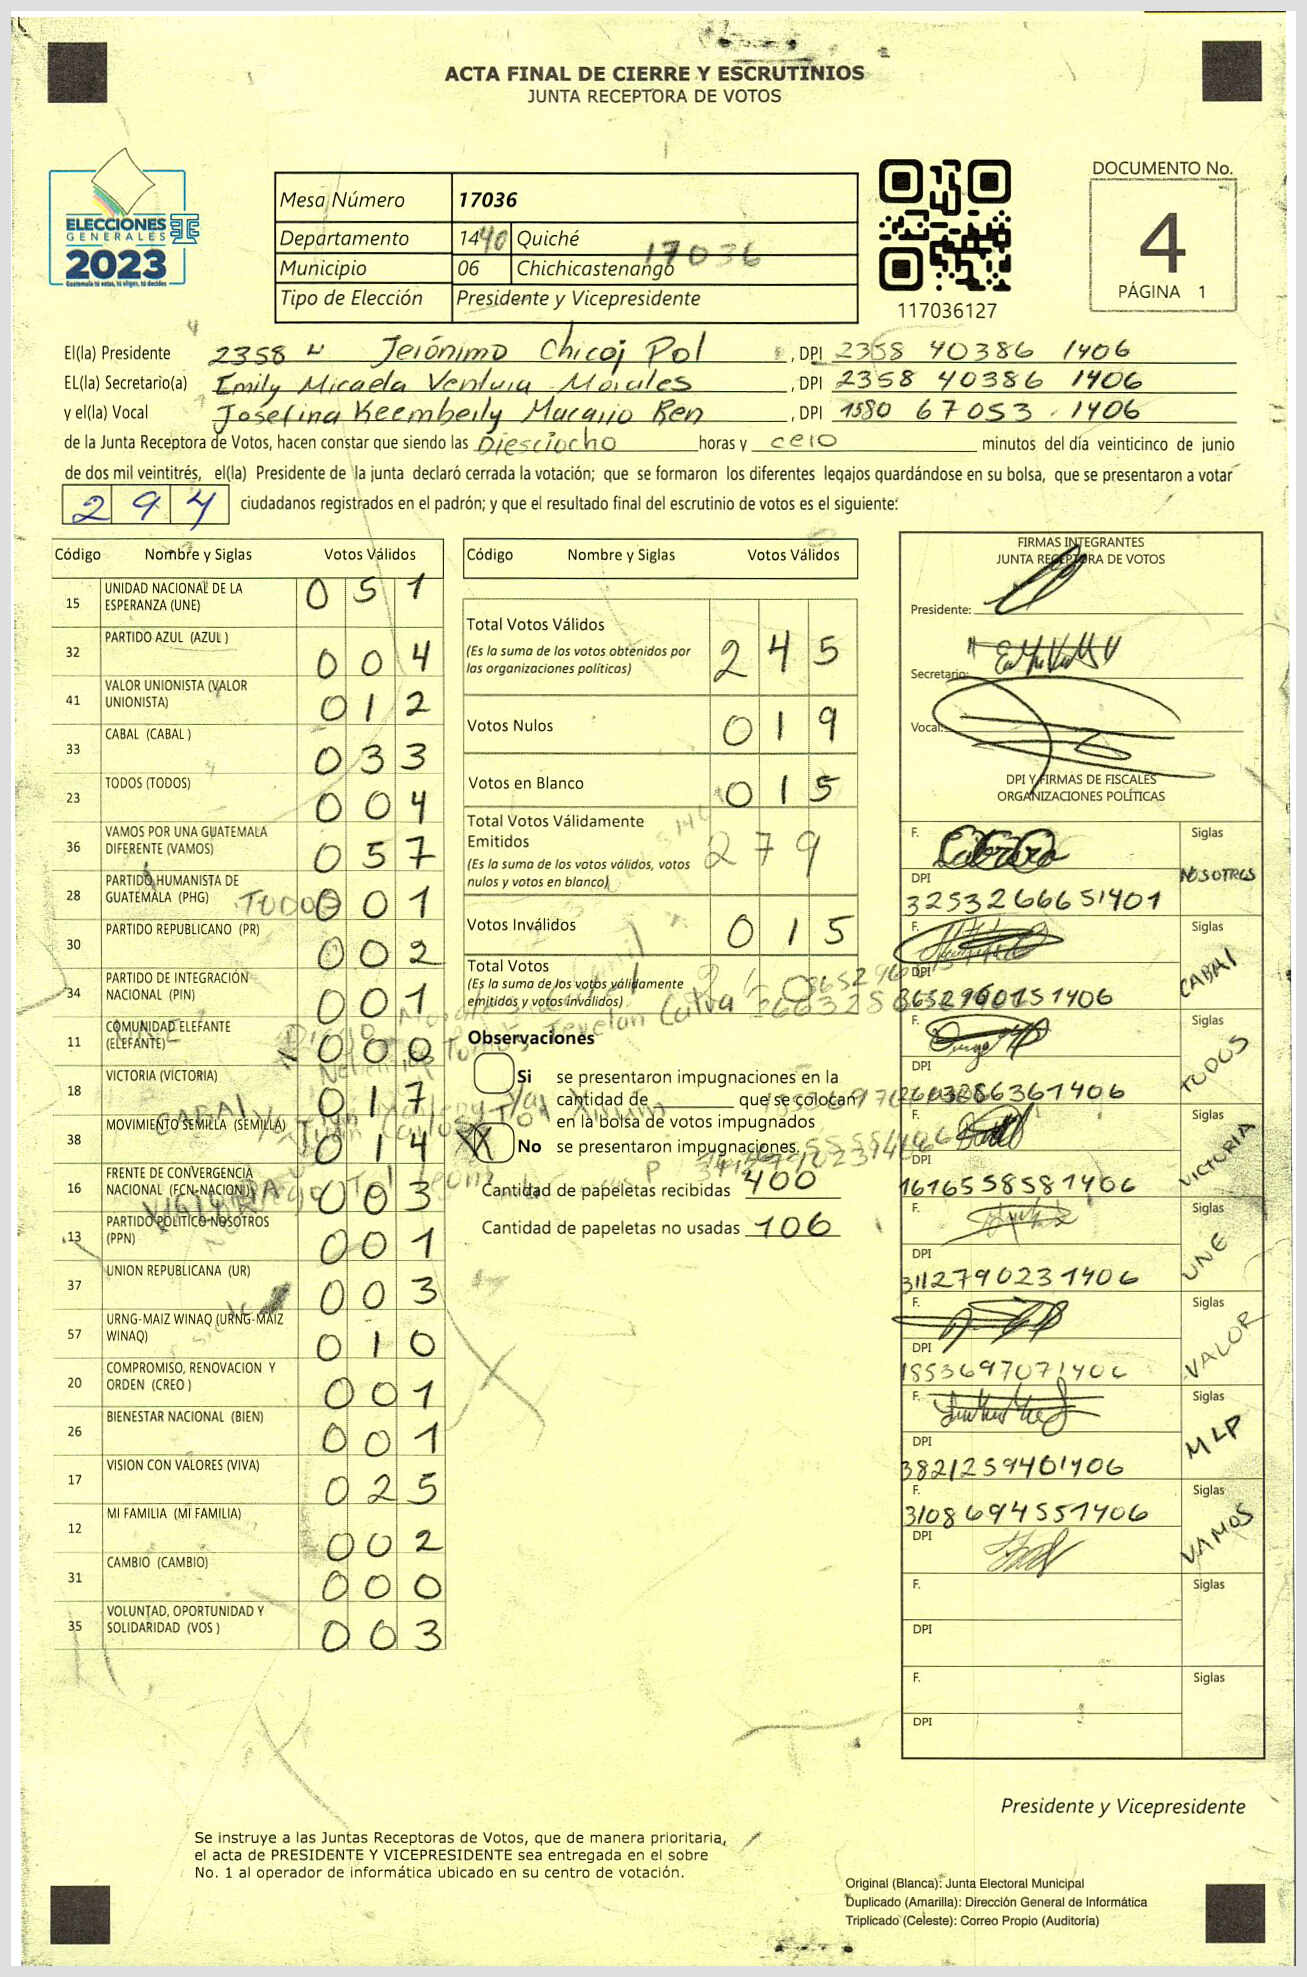 ACTA FINAL DE CIERRE Y ESCRUTINIOS
JUNTA RECEPTORA DE VOTOS
ELECCIONES
GENERALES
2023
Guatemala tú votas, tú eliges, tú decides
Mesa Número 17036
Departamento 14 40 Quiché
17036
Municipio 06 Chichicastenango
Tipo de Elección Presidente y Vicepresidente
117036127
DOCUMENTO No.
4
PÁGINA 1
El(la) Presidente 2358 Jerónimo Chicoj Pol, DPI 2358 40386 1406
EL(la) Secretario(a) Emily Micaela Ventura Morales, DPI 2358 40386 1406
y el(la) Vocal Josefina Keemberly Macario Ren, DPI 1580 67053 1406
de la Junta Receptora de Votos, hacen constar que siendo las Diesciocho horas y cero minutos del día veinticinco de junio
de dos mil veintitrés, el(la) Presidente de la junta declaró cerrada la votación; que se formaron los diferentes legajos guardándose en su bolsa, que se presentaron a votar
294 ciudadanos registrados en el padrón; y que el resultado final del escrutinio de votos es el siguiente:
Código Nombre y Siglas Votos Válidos
15 UNIDAD NACIONAL DE LA ESPERANZA (UNE) 051
32 PARTIDO AZUL (AZUL ) 004
41 VALOR UNIONISTA (VALOR UNIONISTA) 012
33 CABAL (CABAL ) 033
23 TODOS (TODOS) 004
36 VAMOS POR UNA GUATEMALA DIFERENTE (VAMOS) 057
28 PARTIDO HUMANISTA DE GUATEMALA (PHG) 001
30 PARTIDO REPUBLICANO (PR) 002
34 PARTIDO DE INTEGRACIÓN NACIONAL (PIN) 001
11 COMUNIDAD ELEFANTE (ELEFANTE) 000
18 VICTORIA (VICTORIA) 017
38 MOVIMIENTO SEMILLA (SEMILLA) 014
16 FRENTE DE CONVERGENCIA NACIONAL (FCN-NACION) 003
13 PARTIDO POLITICO NOSOTROS (PPN) 001
37 UNION REPUBLICANA (UR) 003
57 URNG-MAIZ WINAQ (URNG-MAIZ WINAQ) 010
20 COMPROMISO, RENOVACION Y ORDEN (CREO ) 001
26 BIENESTAR NACIONAL (BIEN) 001
17 VISION CON VALORES (VIVA) 025
12 MI FAMILIA (MI FAMILIA) 002
31 CAMBIO (CAMBIO) 000
35 VOLUNTAD, OPORTUNIDAD Y SOLIDARIDAD (VOS ) 003
Código Nombre y Siglas Votos Válidos
Total Votos Válidos 245
(Es la suma de los votos obtenidos por
las organizaciones políticas)
Votos Nulos 019
Votos en Blanco 015
Total Votos Válidamente
Emitidos 279
(Es la suma de los votos válidos, votos
nulos y votos en blanco)
Votos Inválidos 015
Total Votos
(Es la suma de los votos válidamente
emitidos y votos inválidos)
Observaciones
Si se presentaron impugnaciones en la
cantidad de ______ que se colocan
en la bolsa de votos impugnados
XX No se presentaron impugnaciones.
Cantidad de papeletas recibidas 400
Cantidad de papeletas no usadas 106
FIRMAS INTEGRANTES
JUNTA RECEPTORA DE VOTOS
Presidente:
Secretario:
Vocal:
DPI Y FIRMAS DE FISCALES
ORGANIZACIONES POLÍTICAS
F. Siglas
DPI NOSOTROS
3253266651401
F. Siglas
DPI CABAL
F. Siglas
DPI TODOS
F. Siglas
DPI VICTORIA
1616558581406
F. Siglas
DPI UNE
3112790231406
F. Siglas
DPI VALOR
1853697071406
F. Siglas
DPI MLP
3821259401406
F. Siglas
3108694551406 VAMOS
DPI
F. Siglas
DPI
F. Siglas
DPI
Presidente y Vicepresidente
Se instruye a las Juntas Receptoras de Votos, que de manera prioritaria,
el acta de PRESIDENTE Y VICEPRESIDENTE sea entregada en el sobre
No. 1 al operador de informática ubicado en su centro de votación.
Original (Blanca): Junta Electoral Municipal
Duplicado (Amarilla): Dirección General de Informática
Triplicado (Celeste): Correo Propio (Auditoría)